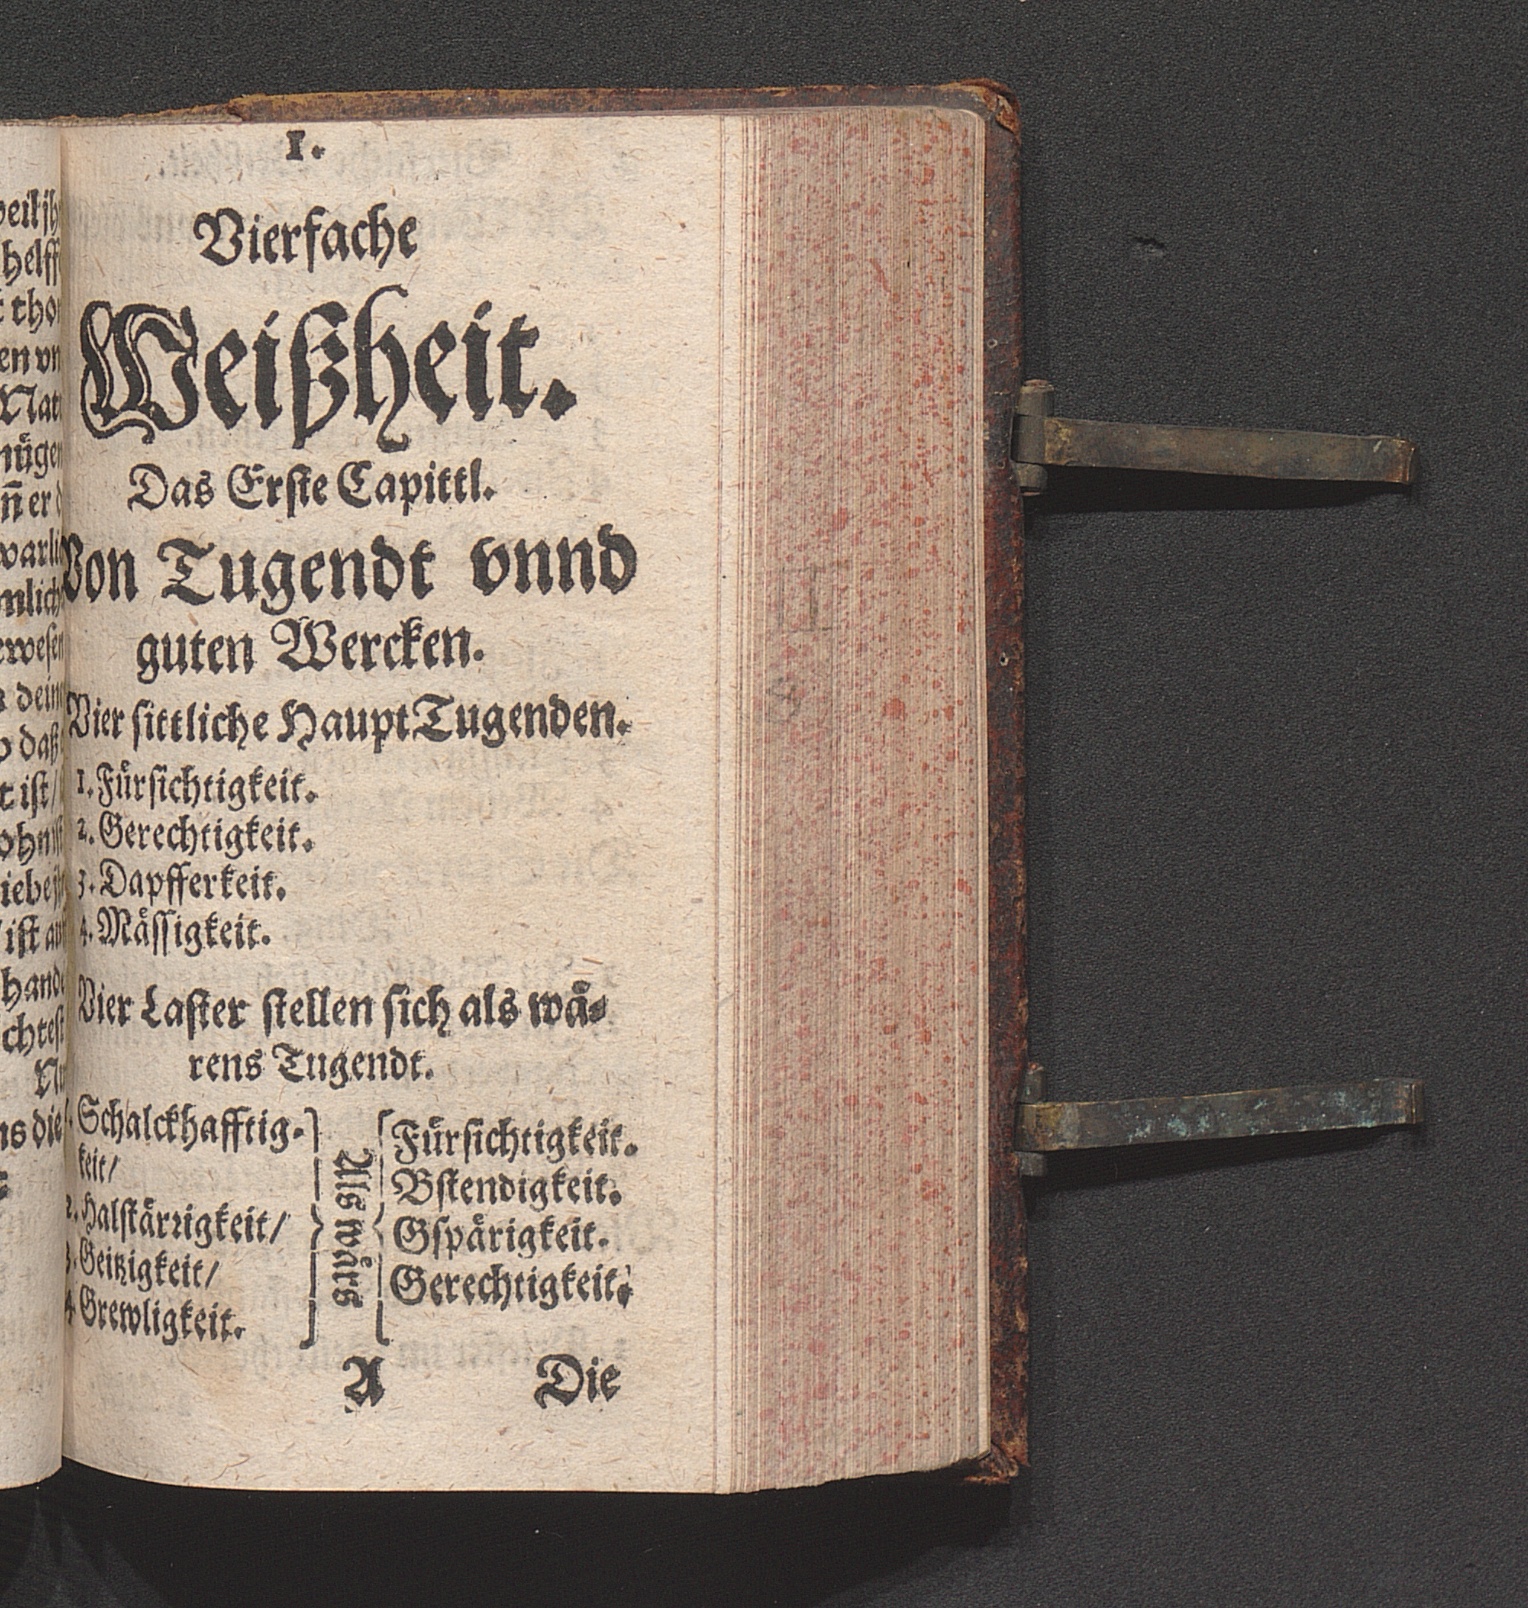 1.
Vierfache
Weißheit.
Das Erste Capittl.
Von Tugendt vnnd
guten Wercken.
Vier sittliche HauptTugenden.
1. Fürsichtigkeit.
2. Gerechtigkeit.
3. Dapfferkeit.
4. Mässigkeit.
Vier Laster stellen sich als wä-
rens Tugendt.
1. Schalckhafftig-
keit/
2. Halstärrigkeit/
3. Geitzigkeit/
4. Grewligkeit.
Als wärs
Fürsichtigkeit.
Bstendigkeit.
Gspärigkeit.
Gerechtigkeit.
A Die